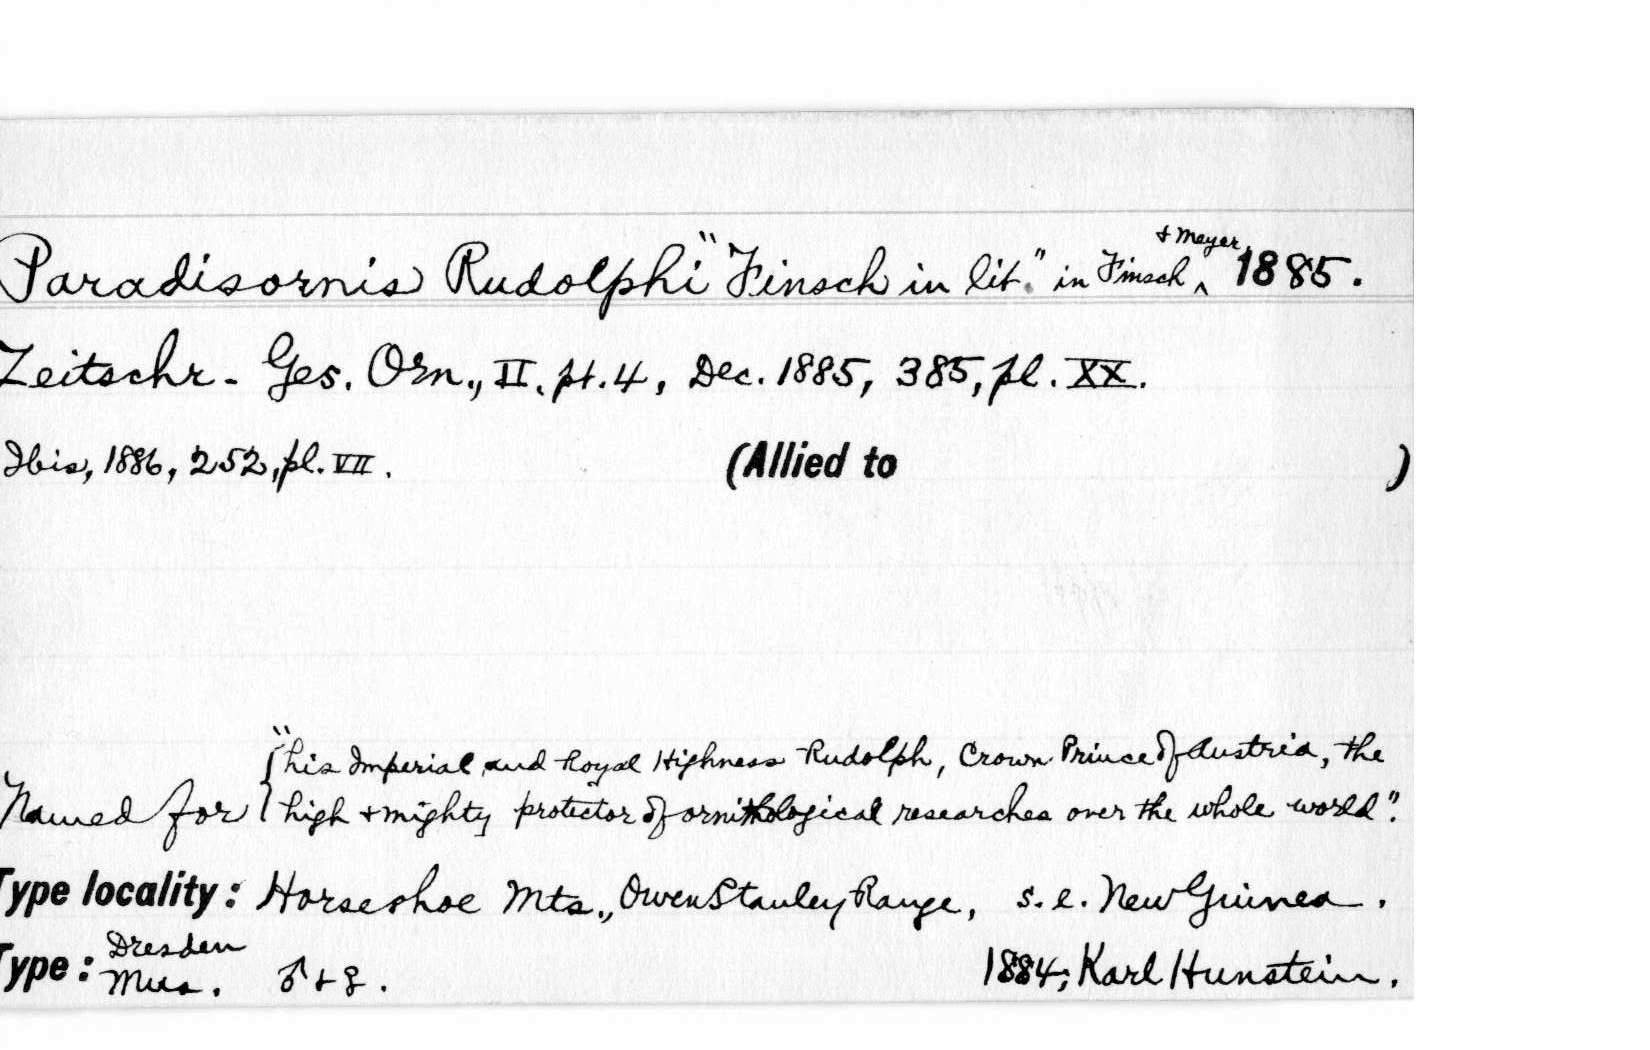 Paradisornis Rudolphi "Finsch in lit." in Finsch & Meyer, 1885.
Zeitschr. Ges. Orn., II, pt. 4, Dec. 1885, 385, pl. XX.
Ibis, 1886, 252, pl. VII. (Allied to )
"his Imperial and Royal Highness Rudolph, Crown Prince of Austria, the
Named for high & mighty protector of ornithological researches over the whole world".
Type locality: Horseshoe Mts., Owen Stanley Range, s.e. New Guinea.
Type: Dresden Mus. ♂ & ♀. 1884; Karl Hunstein.